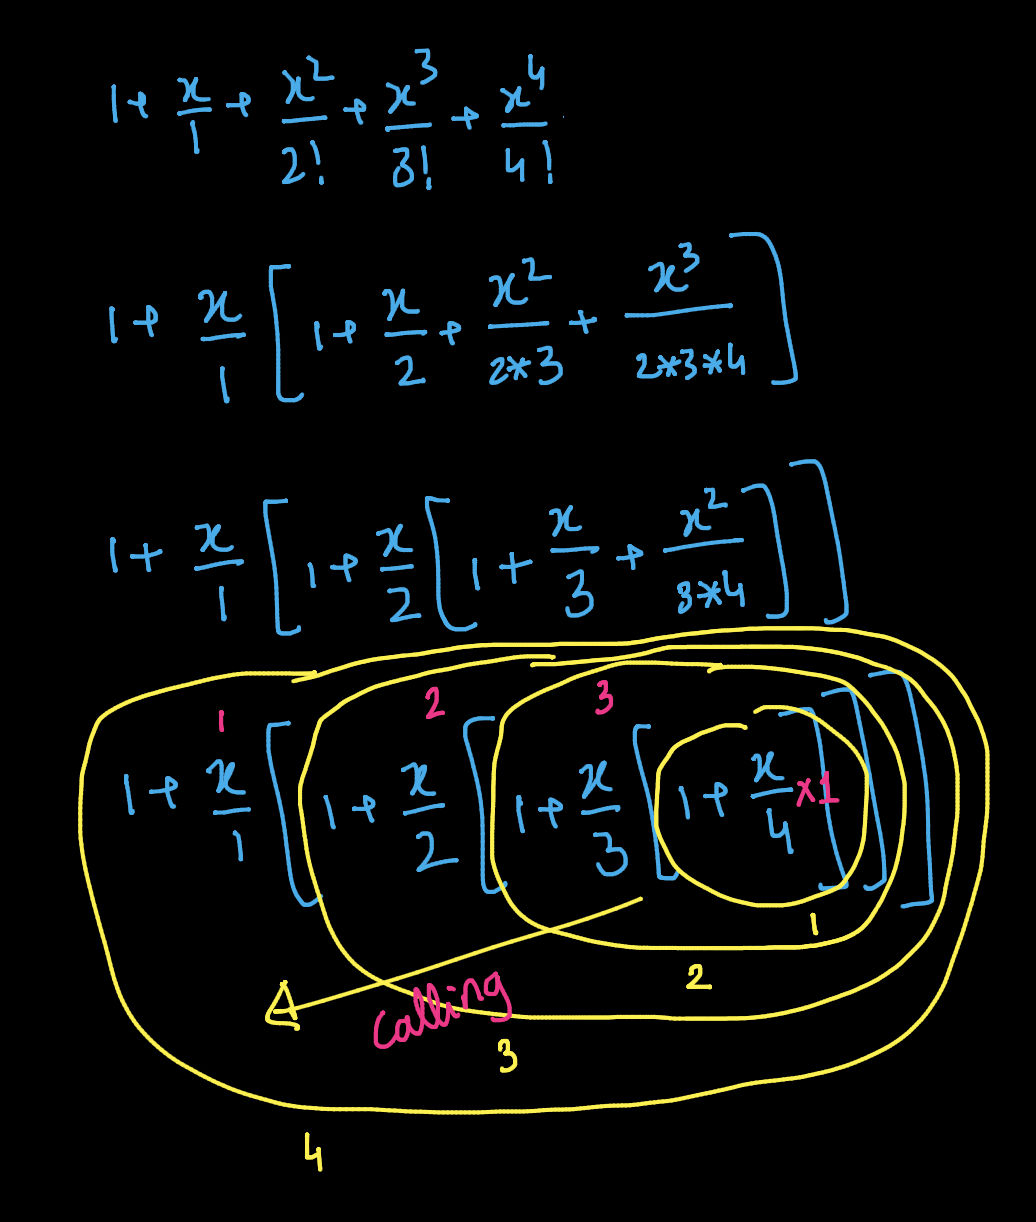 1 + x/1 + x²/2! + x³/3! + x⁴/4!
1 + x/1 [ 1 + x/2 + x²/2*3 + x³/2*3*4 ]
1 + x/1 [ 1 + x/2 [ 1 + x/3 + x²/3*4 ] ]
1 2 3
1 + x/1 [ 1 + x/2 [ 1 + x/3 [ 1 + x/4 ×1 ] ] ]
1
2
calling
3
4